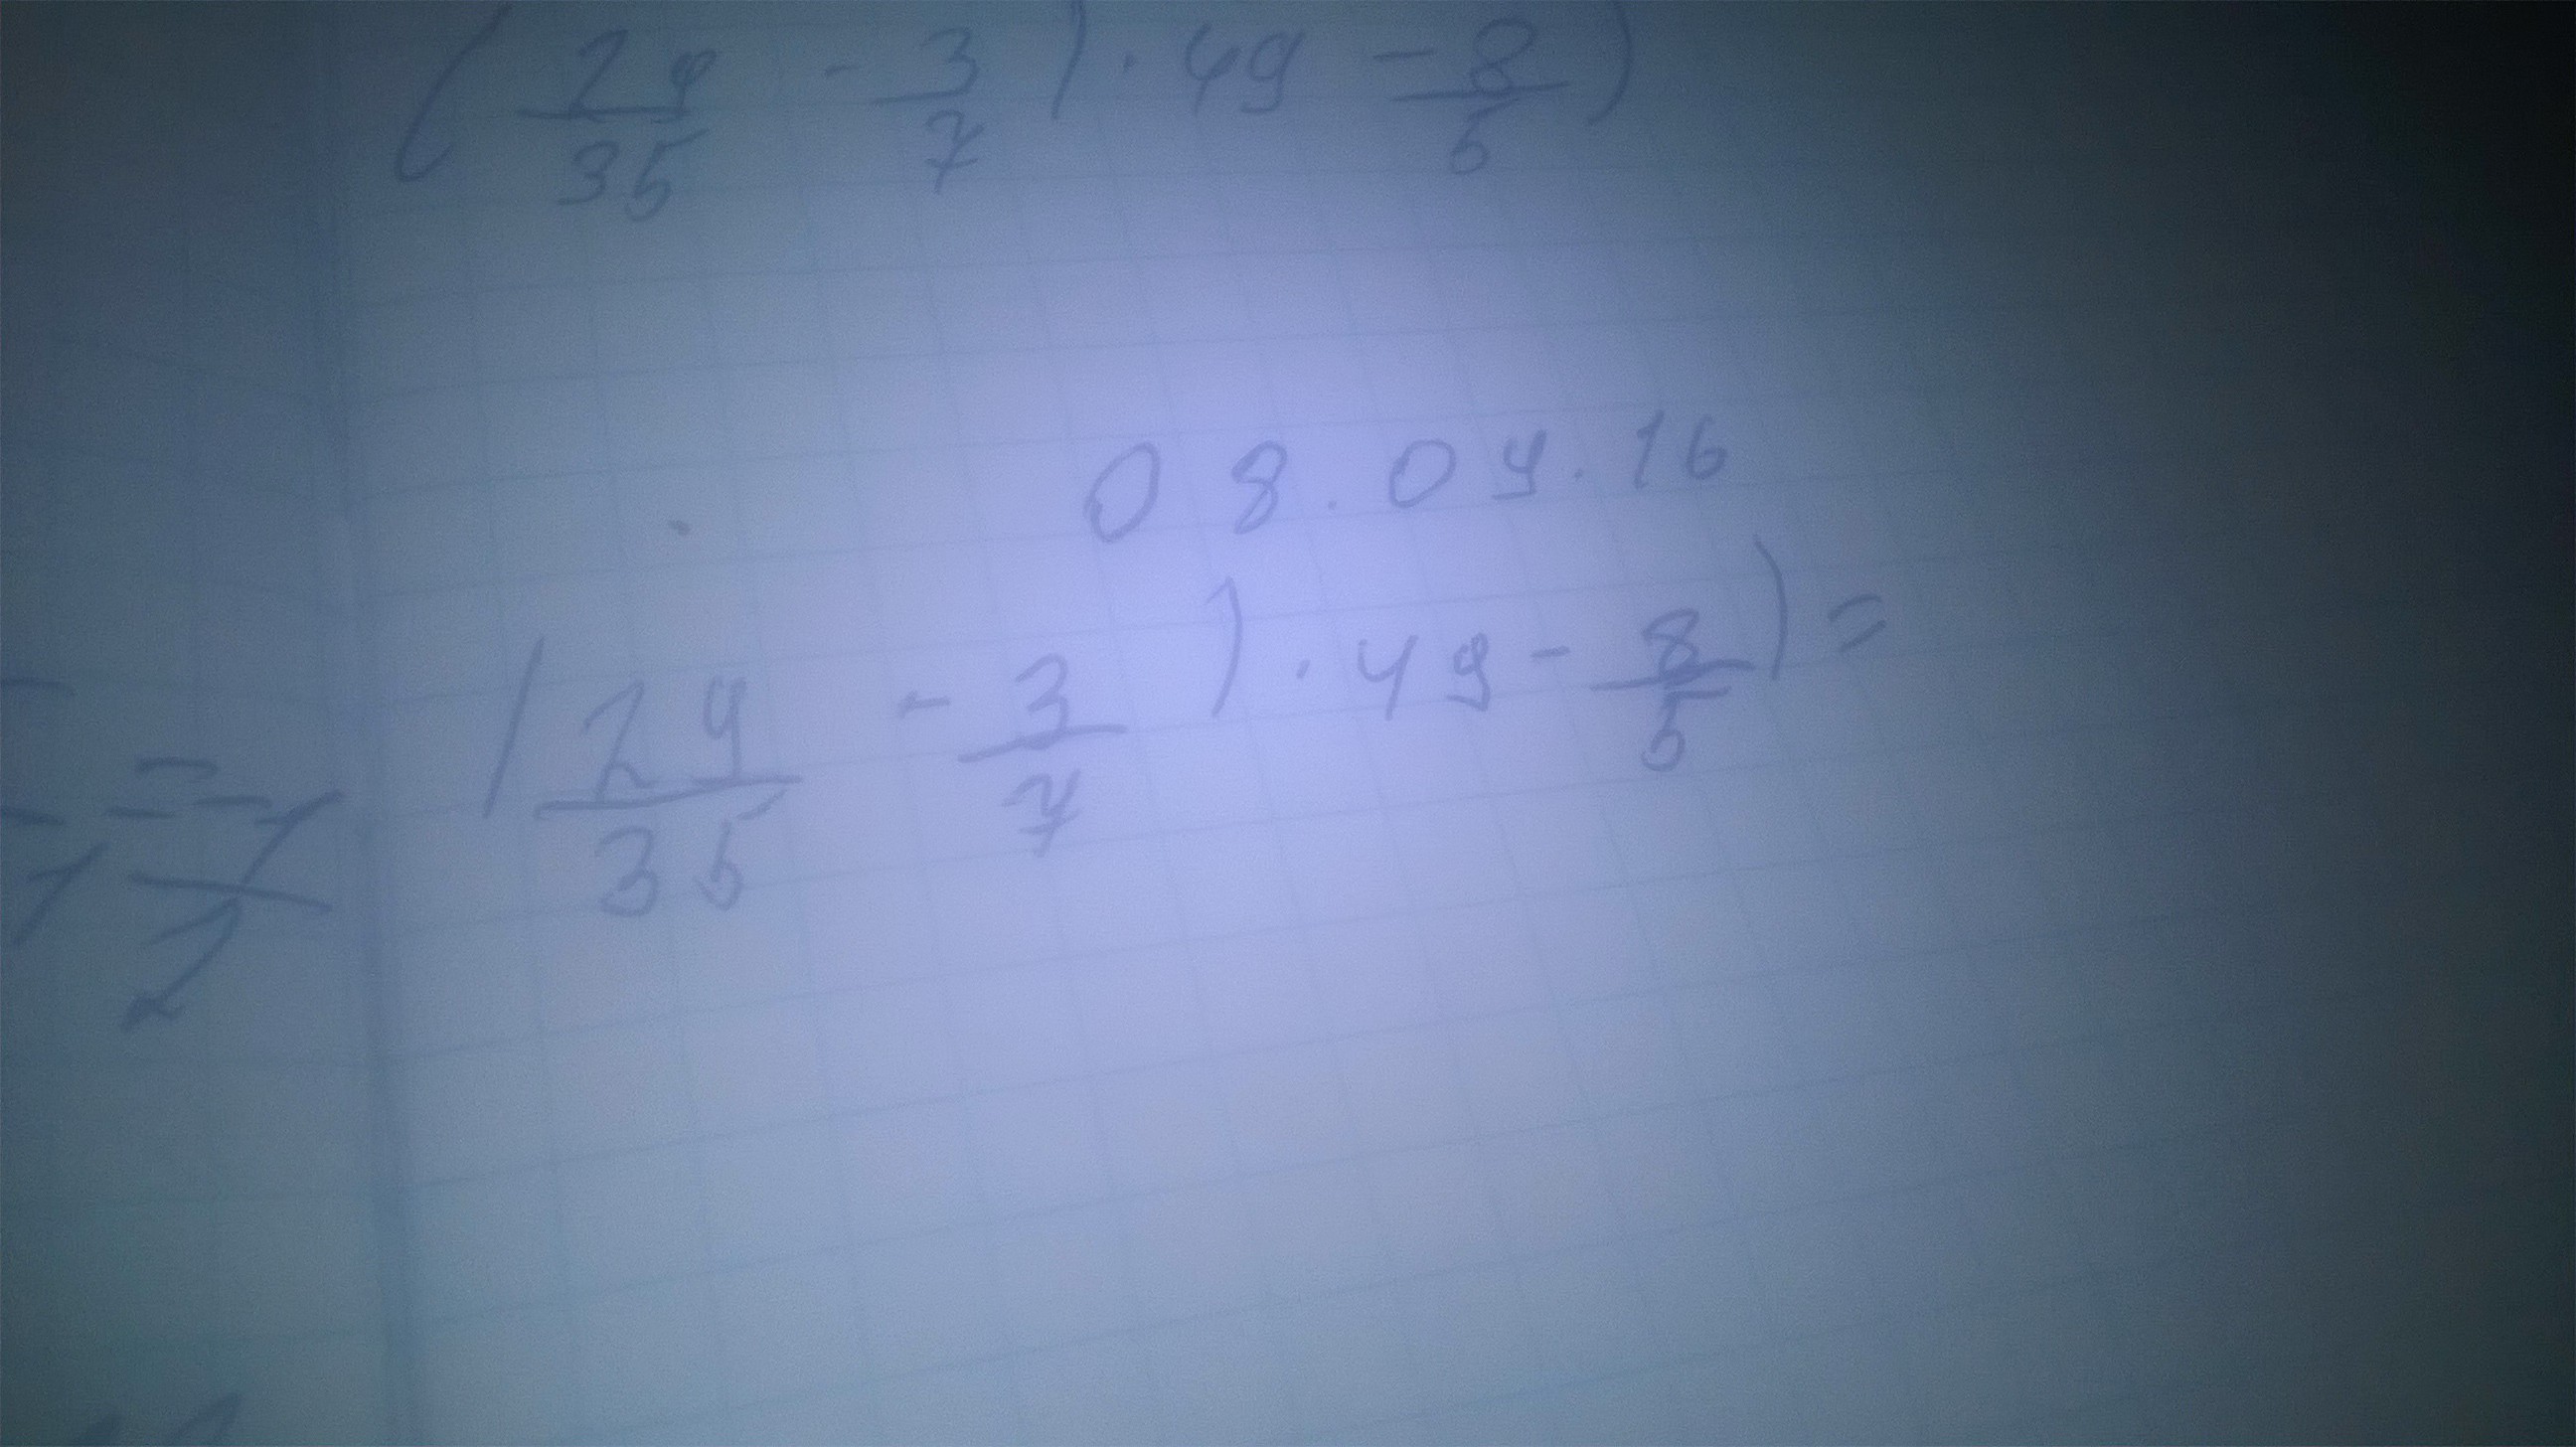 (24/35 - 3/7) · 49 - 8/5)
08.04.16
(24/35 - 3/7) · 49 - 8/5) =